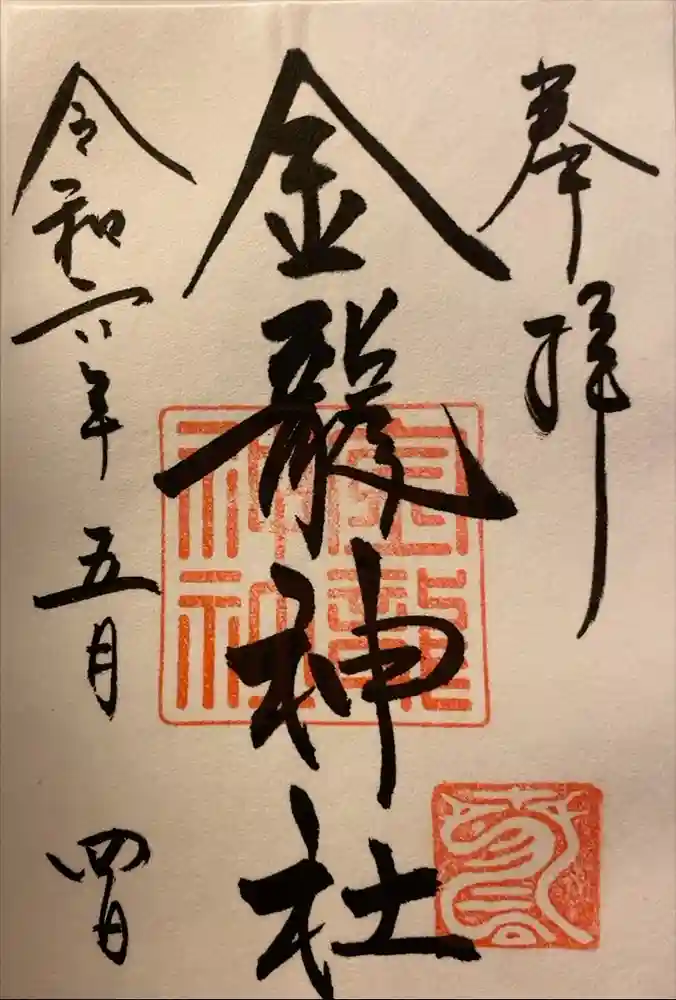 奉拝
金龍神社
金龍神社
令和六年五月四日